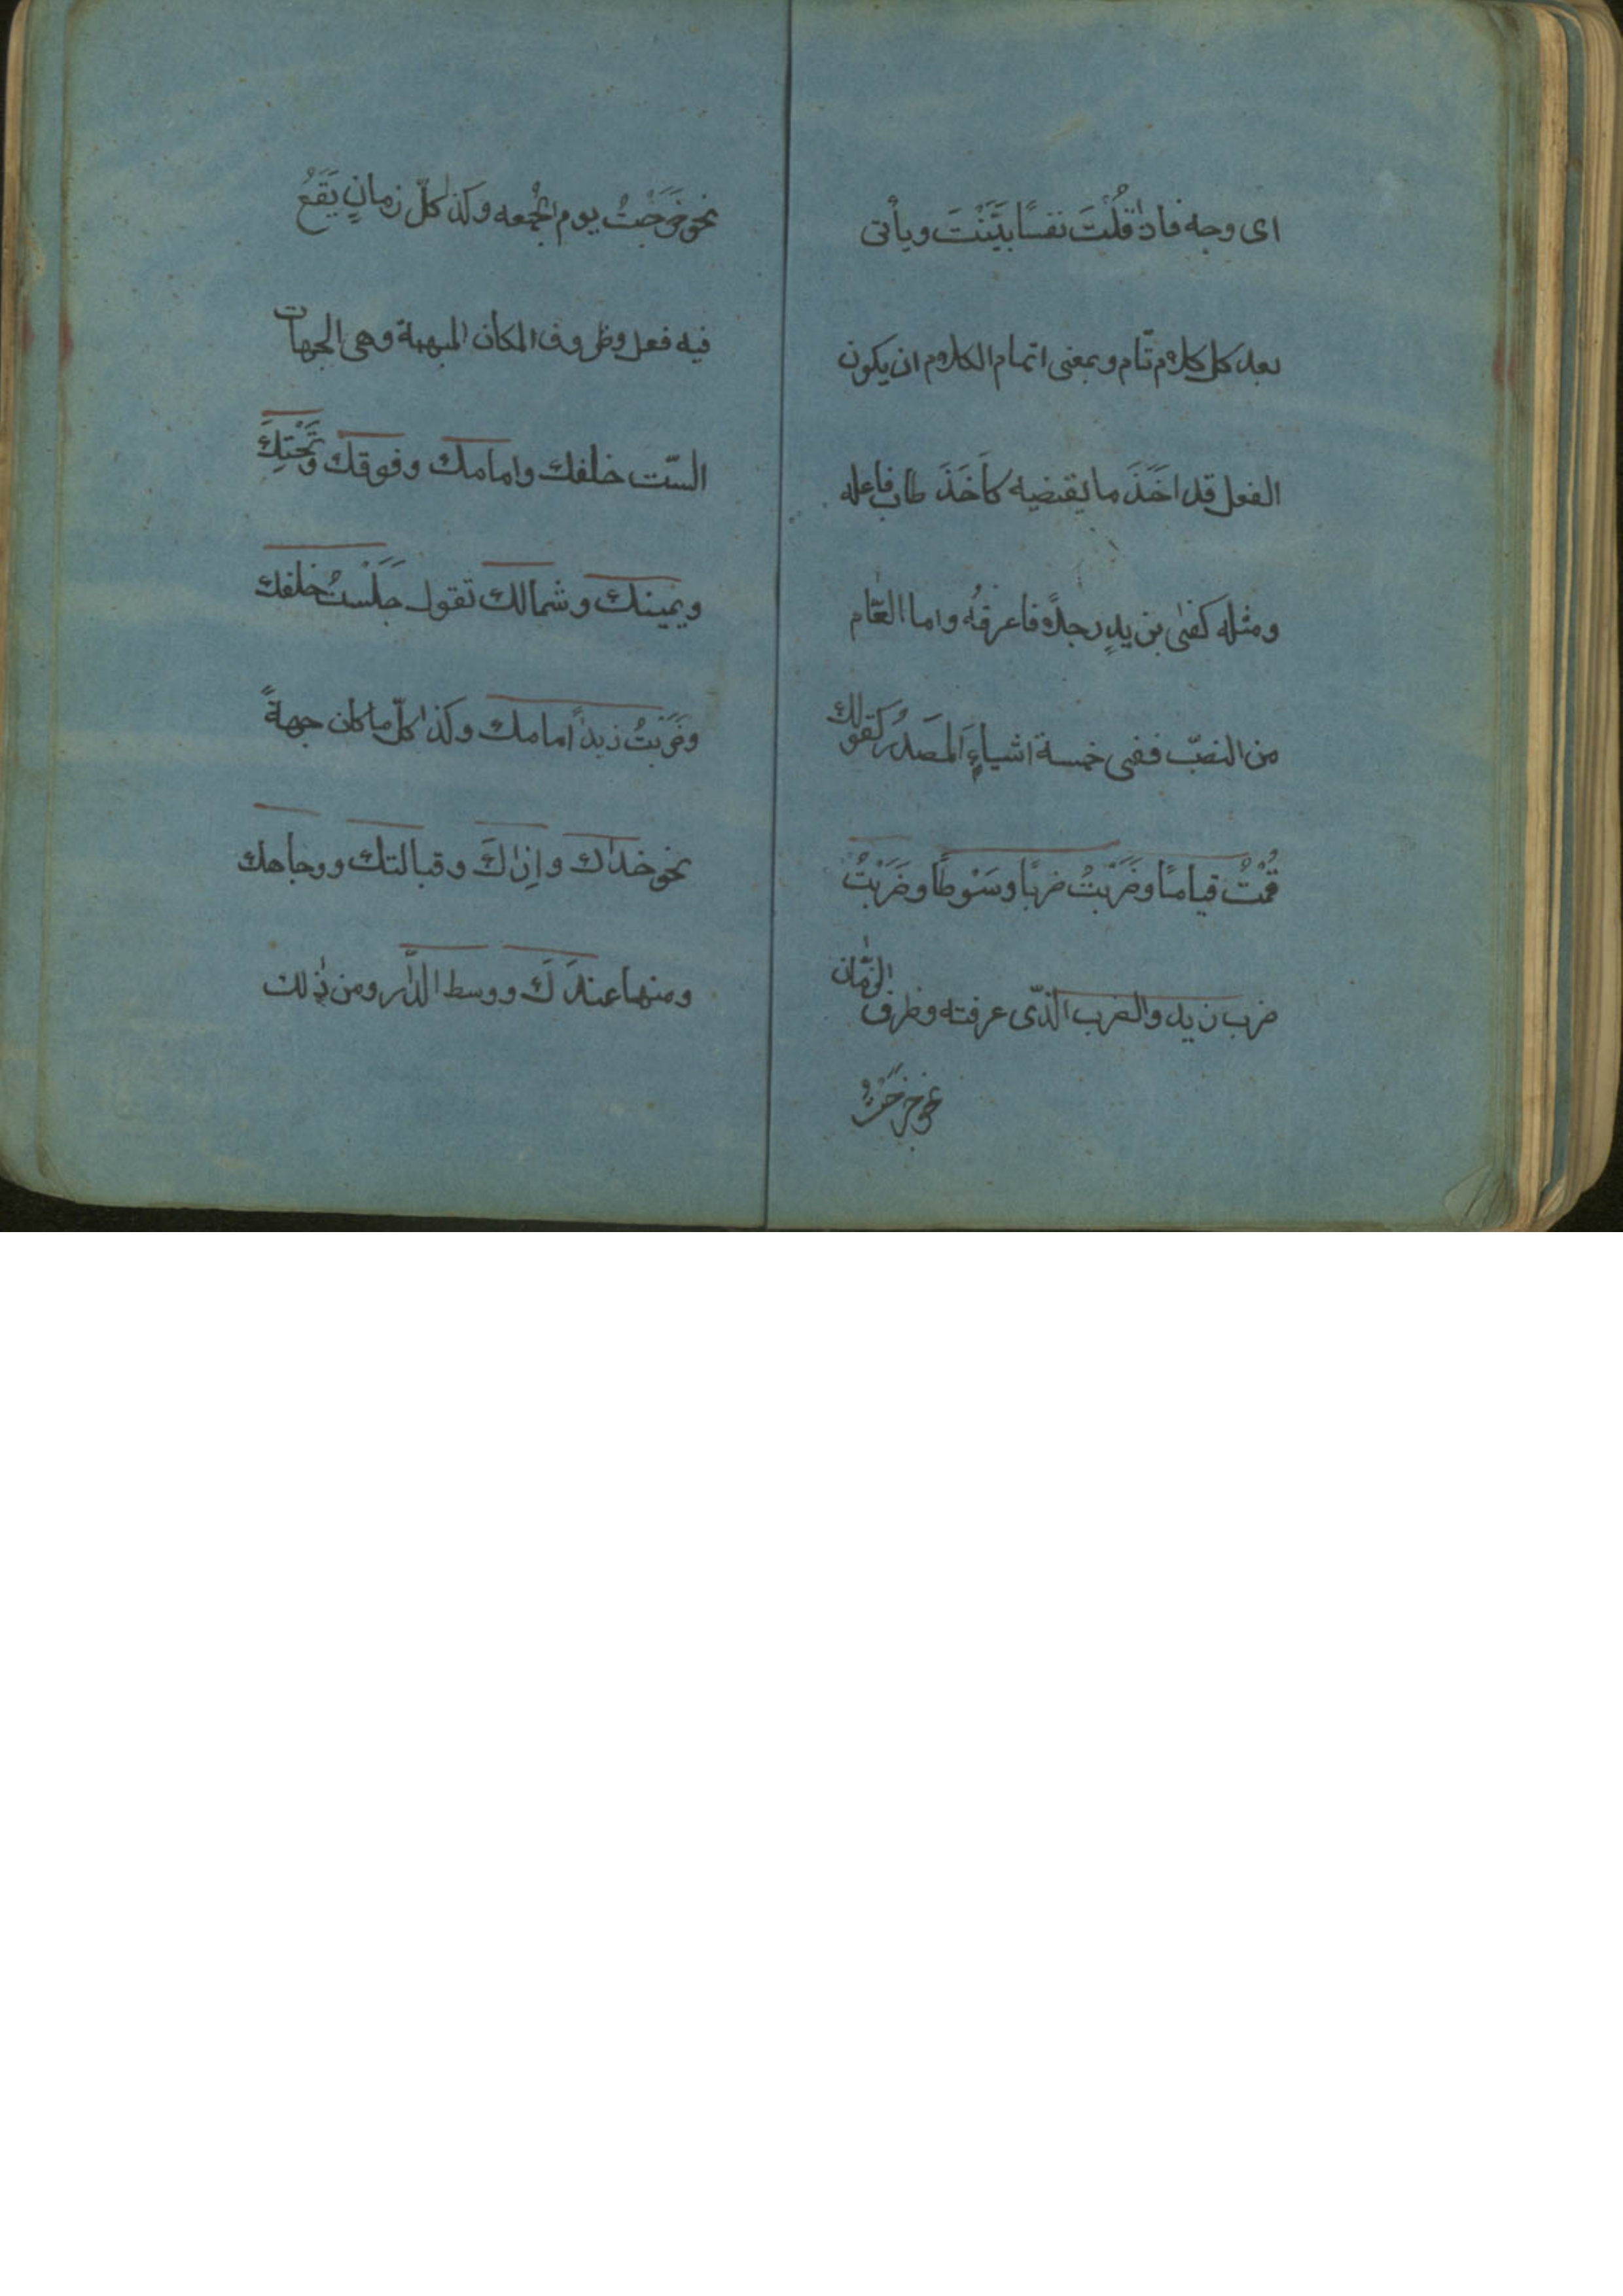 اى وجه فاذا قُلْتَ نفسًا بَيَّنْتَ ويأتى
بعد كل كلام تام وبمعنى اتمام الكلام ان يكون
الفعل قد اَخَذَ ما يقتضيه كاَخَذَ طاب فاعله
ومثله كفى بزيدٍ رجلاً فاعرفْهُ واما العّام
من النصّب ففى خمسة اشياءٍ اَلمصَدَرُ كقولك
قُمْتُ قيامًا وضَرَبْتُ ضربًا وسَوْطًا وضَرَبْتُ
ضرب زيد والضرب الذّى عرفته وظرف الزّمان
نحو خرَجْتُ
نحو خَرَجْتُ يوم الجُمعه وكذا كلّ زمانٍ يَقَعُ
فيه فعل وظروف المكان المبهمة وهى الجهات
السّت خلفك وامامك وفوقك وتَحْتِكَ
ويمينك وشمالك تقول جَلَسْتُ خلفك
وضَرَبْتُ زيداً امامك وكذا كلّ ما كان جهةً
نحو حذاك وإزاكَ وقبالتك ووجاهك
ومنها عندَكَ ووسط الدّار ومن ذلك